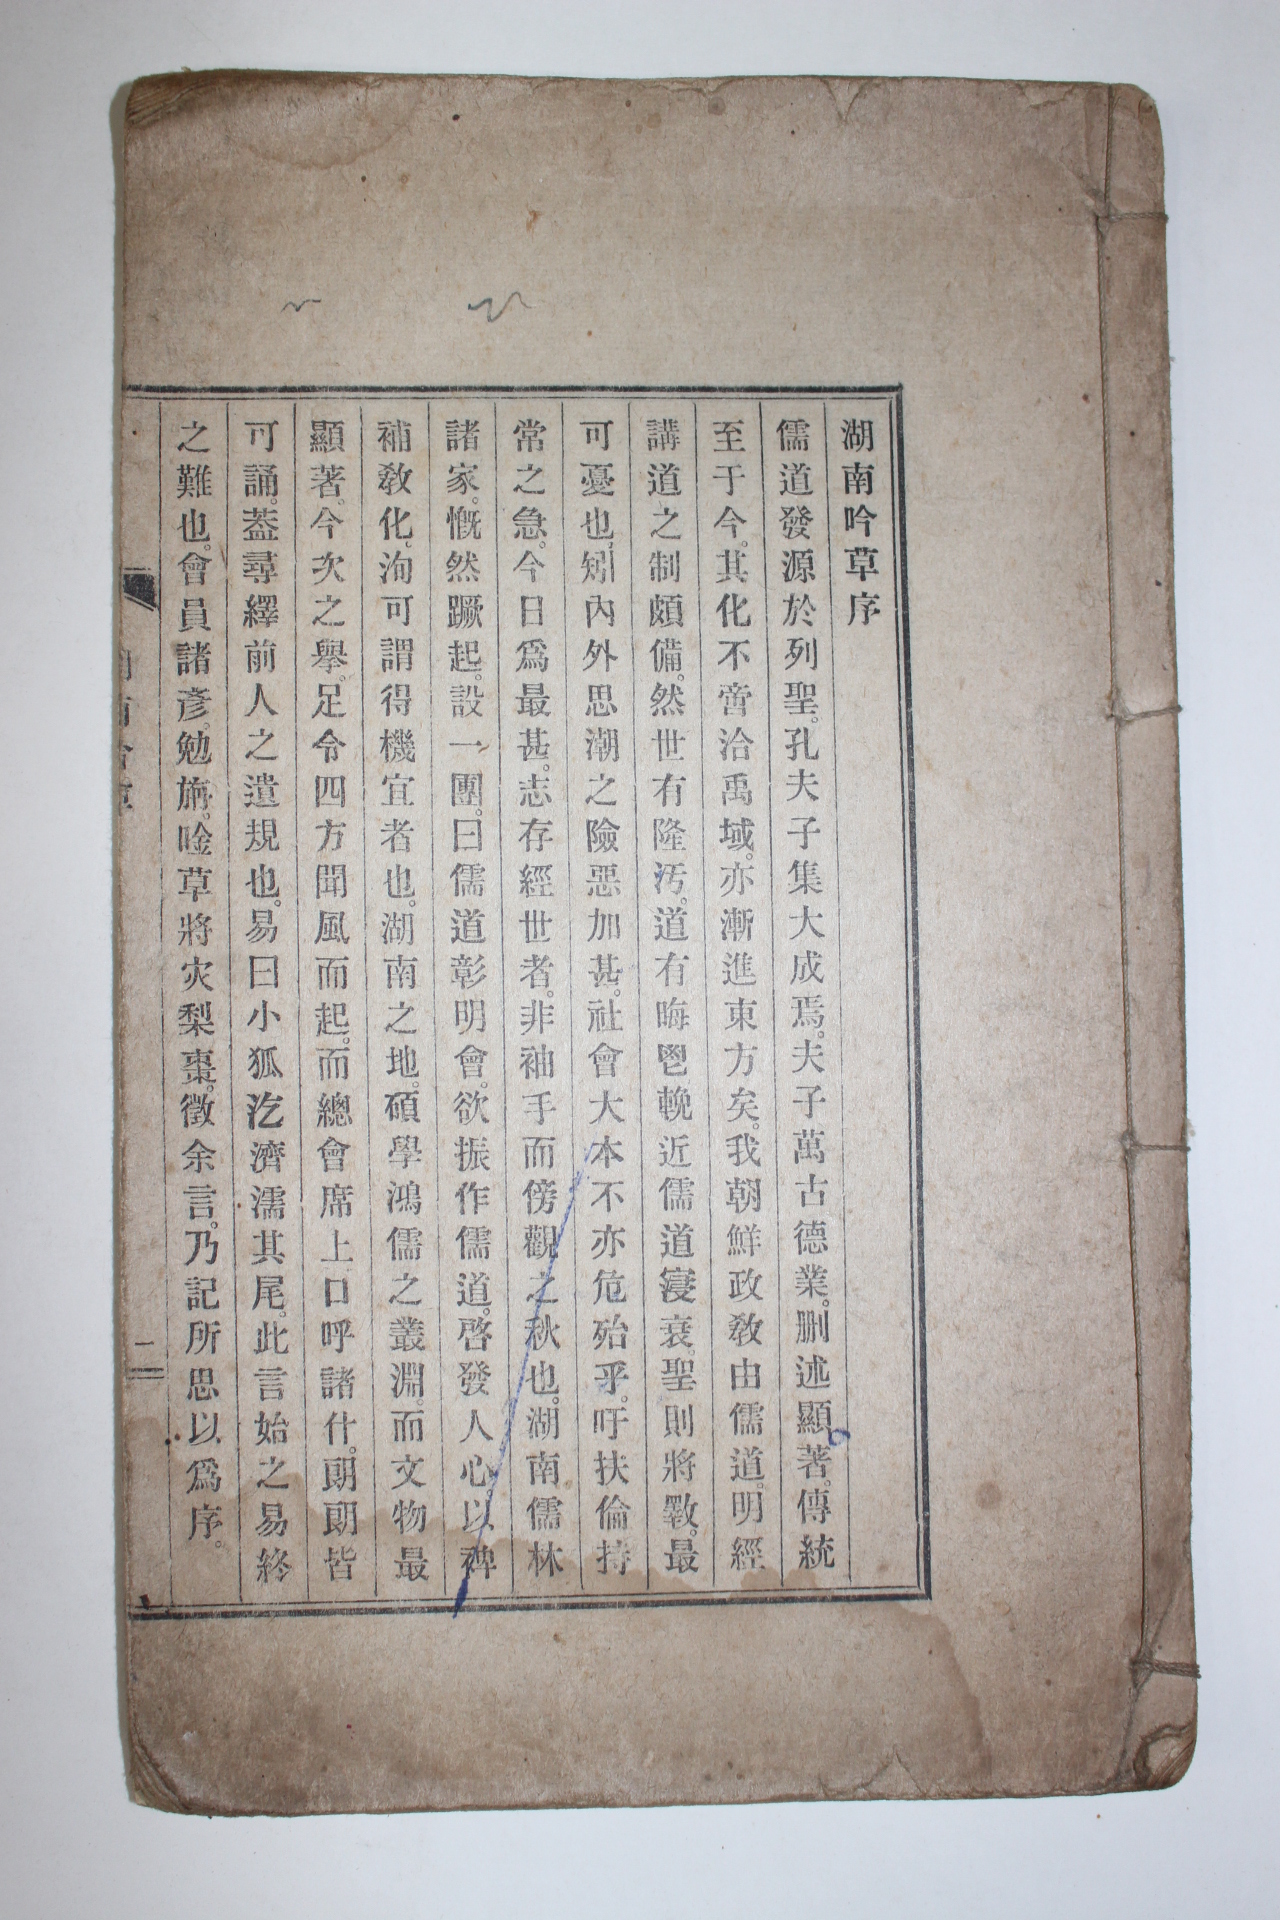 湖南吟草序
儒道發源於列聖。孔夫子集大成焉。夫子萬古德業。刪述顯著。傳統
至于今。其化不啻洽禹域。亦漸進東方矣。我朝鮮政敎由儒道。明經
講道之制頗備。然世有隆汚。道有晦鬯輓近儒道寖衰。聖則將斁。最
可憂也。矧內外思潮之險惡加甚。社會大本不亦危殆乎。吁扶倫持
常之急。今日爲最甚。志存經世者。非袖手而傍觀之秋也。湖南儒林
諸家。慨然蹶起。設一團。曰儒道彰明會。欲振作儒道。啓發人心。以裨
補敎化。洵可謂得機宜者也。湖南之地。碩學鴻儒之叢淵。而文物最
顯著。今次之擧。足令四方聞風而起。而總會席上口呼諸什。朗朗皆
可誦。葢尋繹前人之遺規也。易曰小狐汔濟濡其尾。此言始之易終
之難也。會員諸彥。勉旃。唫草將灾梨棗。徵余言。乃記所思以爲序。
湖南吟草
二